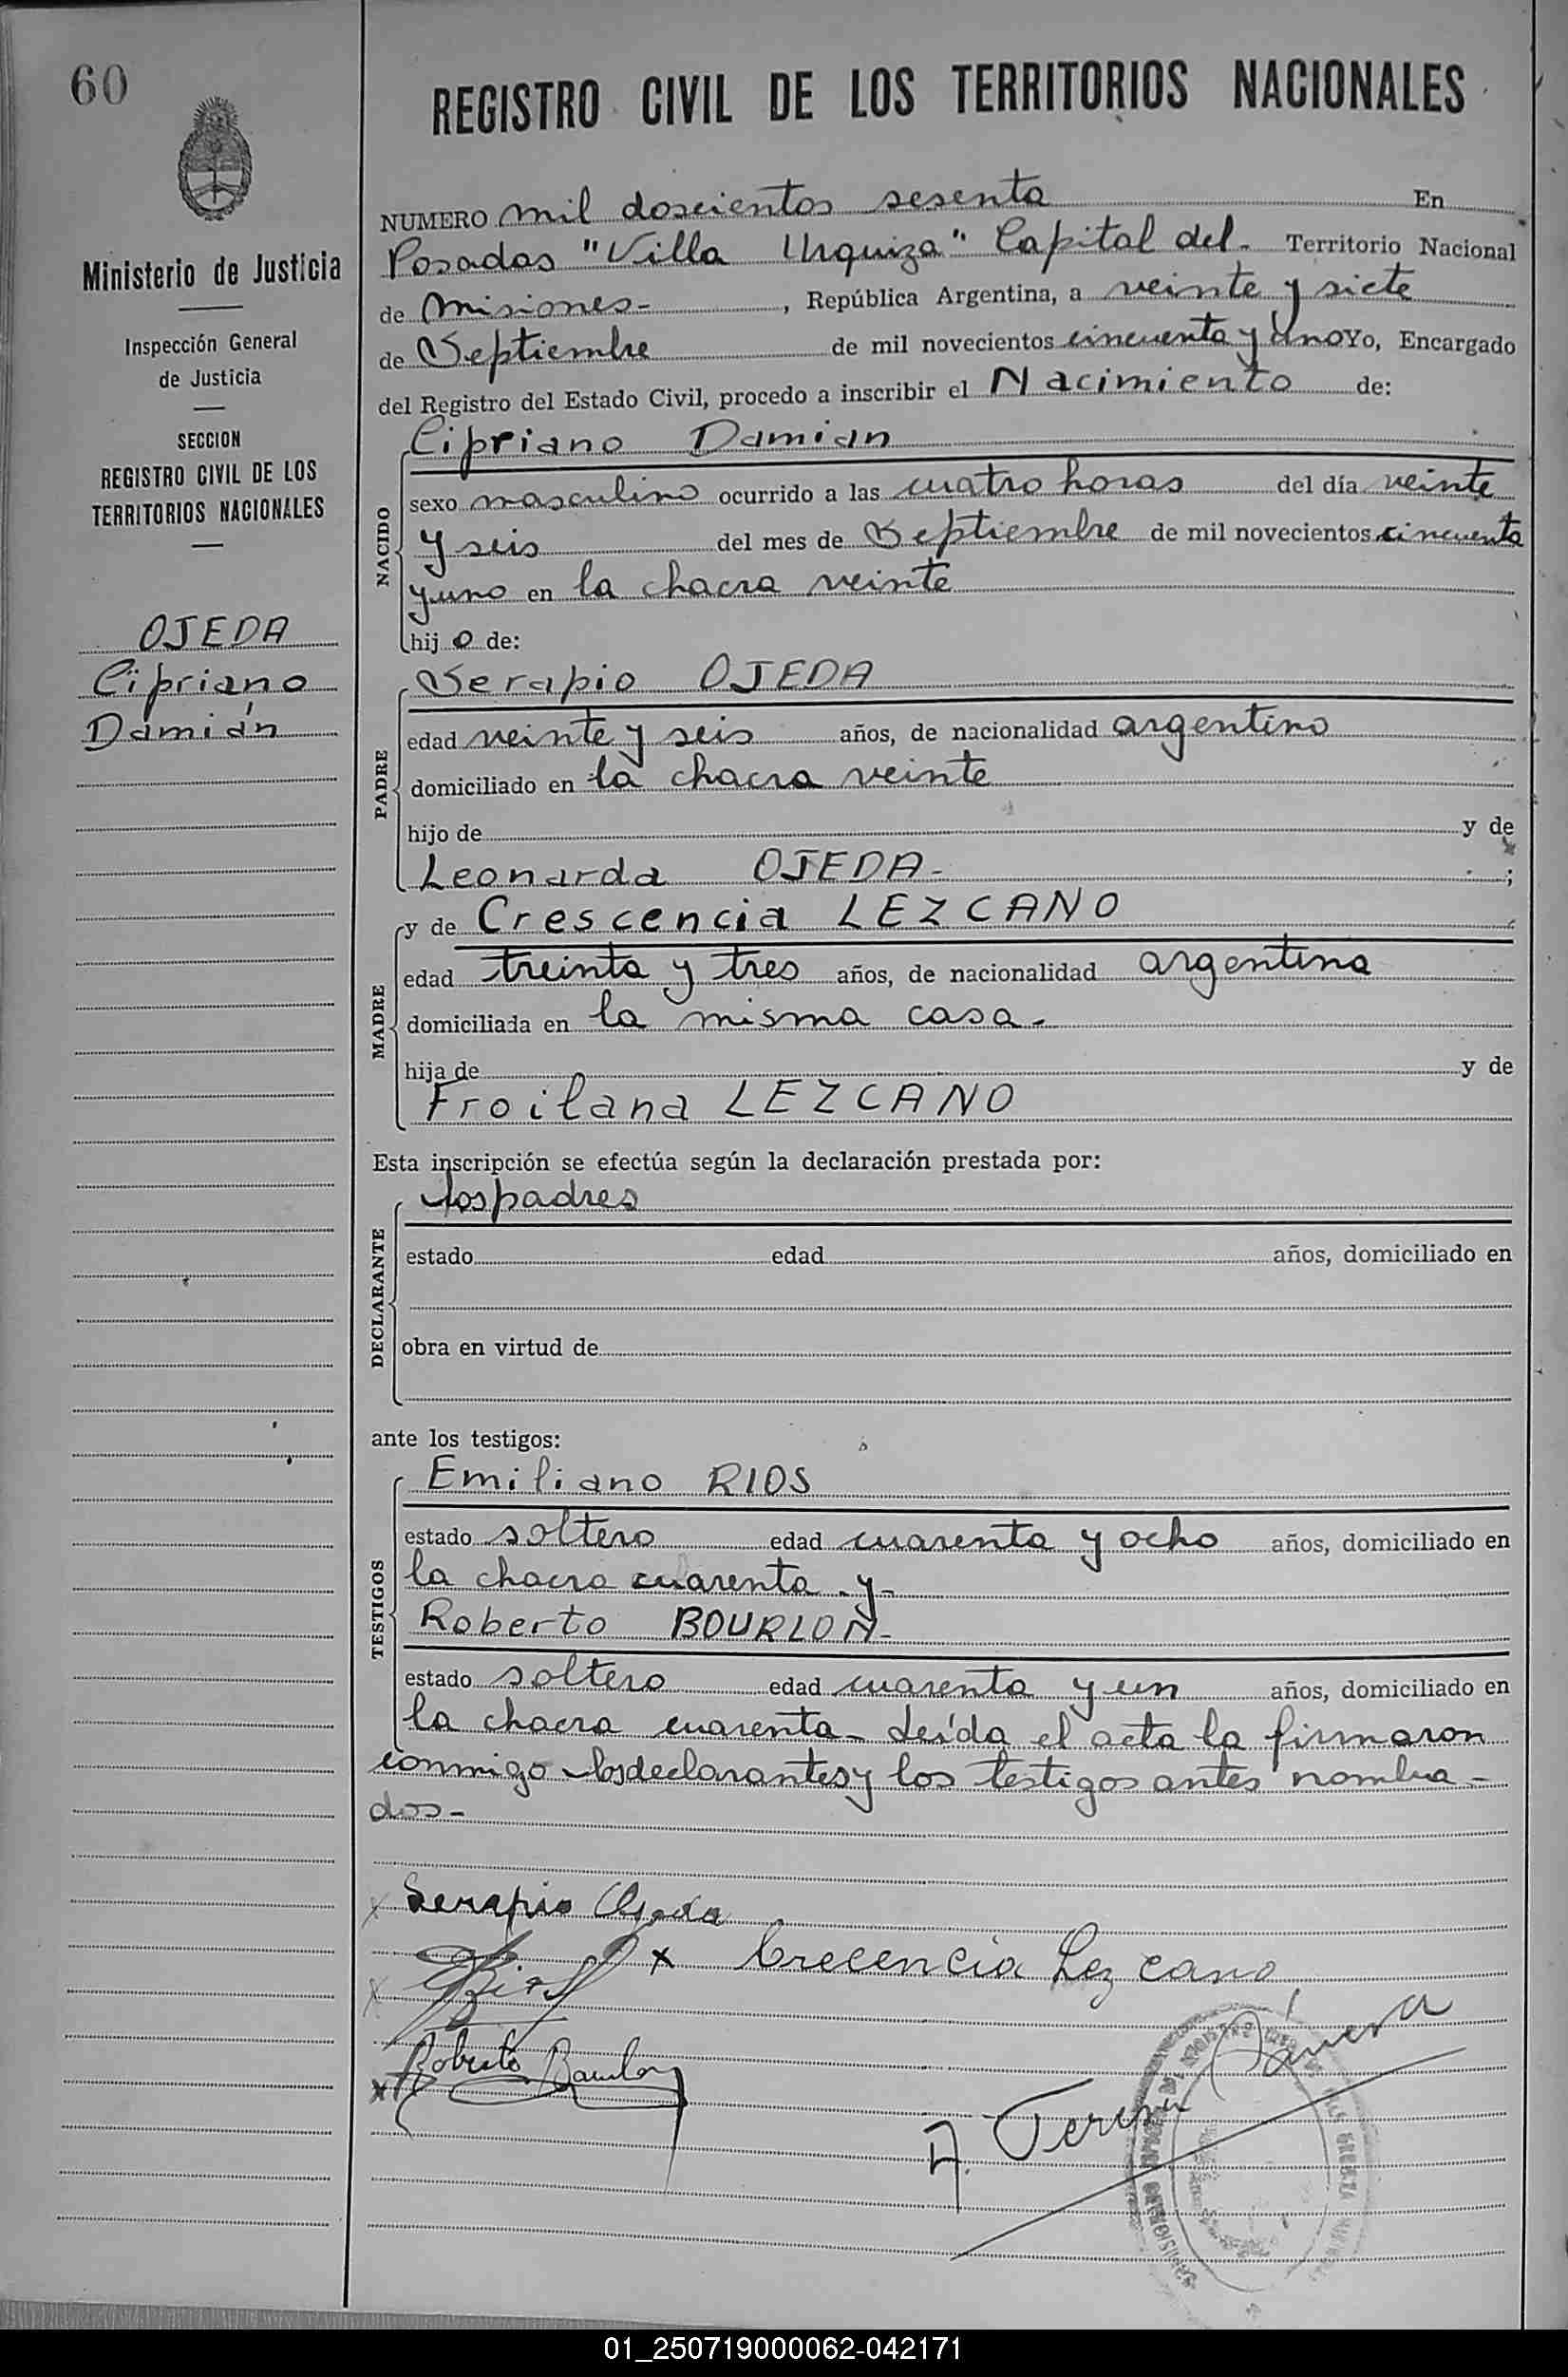 60
REGISTRO CIVIL DE LOS TERRITORIOS NACIONALES
Ministerio de Justicia
Inspección General
de Justicia
SECCION
REGISTRO CIVIL DE LOS
TERRITORIOS NACIONALES
OJEDA
Cipriano
Damián
NUMERO mil doscientos sesenta En
Posadas "Villa Urquiza" Capital del. Territorio Nacional
de Misiones-, República Argentina, a veinte y siete
de Septiembre de mil novecientos cincuenta y uno Yo, Encargado
del Registro del Estado Civil, procedo a inscribir el Nacimiento de:
NACIDO
Cipriano Damian
sexo masculino ocurrido a las cuatro horas del día veinte
y seis del mes de Septiembre de mil novecientos cincuenta
y uno en la chacra veinte
hijo de:
PADRE
Serapio OJEDA
edad veinte y seis años, de nacionalidad argentino
domiciliado en la chacra veinte
hijo de y de
Leonarda OJEDA- ;
MADRE
y de Crescencia LEZCANO
edad treinta y tres años, de nacionalidad argentina
domiciliada en la misma casa-
hija de y de
Froilana LEZCANO
Esta inscripción se efectúa según la declaración prestada por:
DECLARANTE
los padres
estado edad años, domiciliado en
obra en virtud de
ante los testigos:
TESTIGOS
Emiliano RIOS
estado soltero edad cuarenta y ocho años, domiciliado en
la chacra cuarenta -y-
Roberto BOURLON-
estado soltero edad cuarenta y un años, domiciliado en
la chacra cuarenta- Leída el acta la firmaron
conmigo los declarantes y los testigos antes nombra-
dos-
x Serapio Ojeda
x Crecencia Lezcano
x
x Roberto Bourlon
A. Teresa
01_250719000062-042171